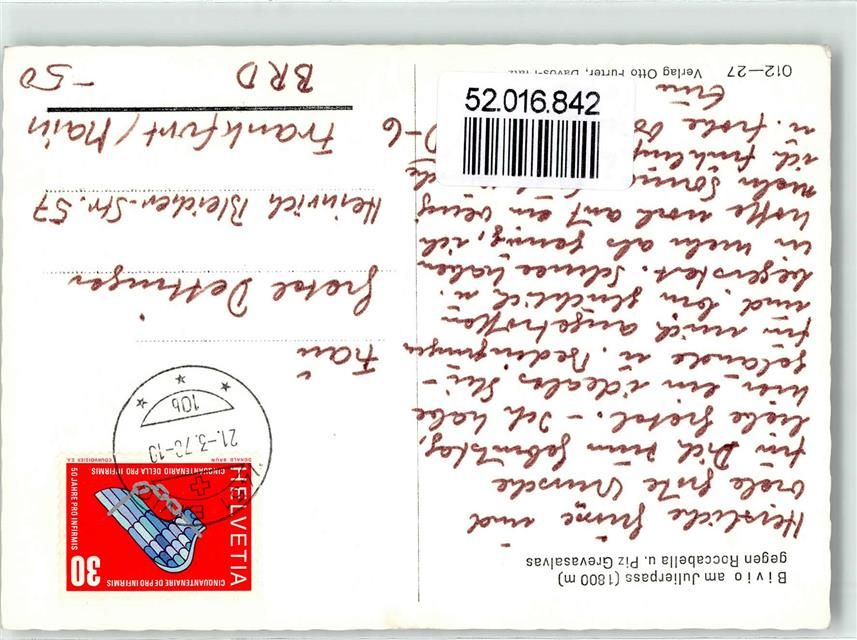 Bivio am Julierpass (1800 m)
gegen Roccabella u. Piz Grevasalvas
Herzliche Grüsse und
viele gute Wünsche
für Dich zum Geburtstag,
liebe Gretel. - Ich habe
hier ein ideales Ski-
gelände u. Bedingungen
für mich angetroffen
und bin glücklich u.
begeistert. Schnee haben
wir mehr als genug, ich
hoffe noch auf ein wenig
mehr Sonne
ich
u. frohe
012-27 Verlag Otto Furter, Davos-Platz
52.016.842
HELVETIA
30
CINQUANTENAIRE DE PRO INFIRMIS
CINQUANTENARIO DELLA PRO INFIRMIS
50 JAHRE PRO INFIRMIS
DONALD BRUN
COURVOISIER S.A.
21.-3.70-10
10b
Frau
Gretel Dettinger
Heinrich Bleicher-Str. 57
D-6 Frankfurt/Main
BRD
-50